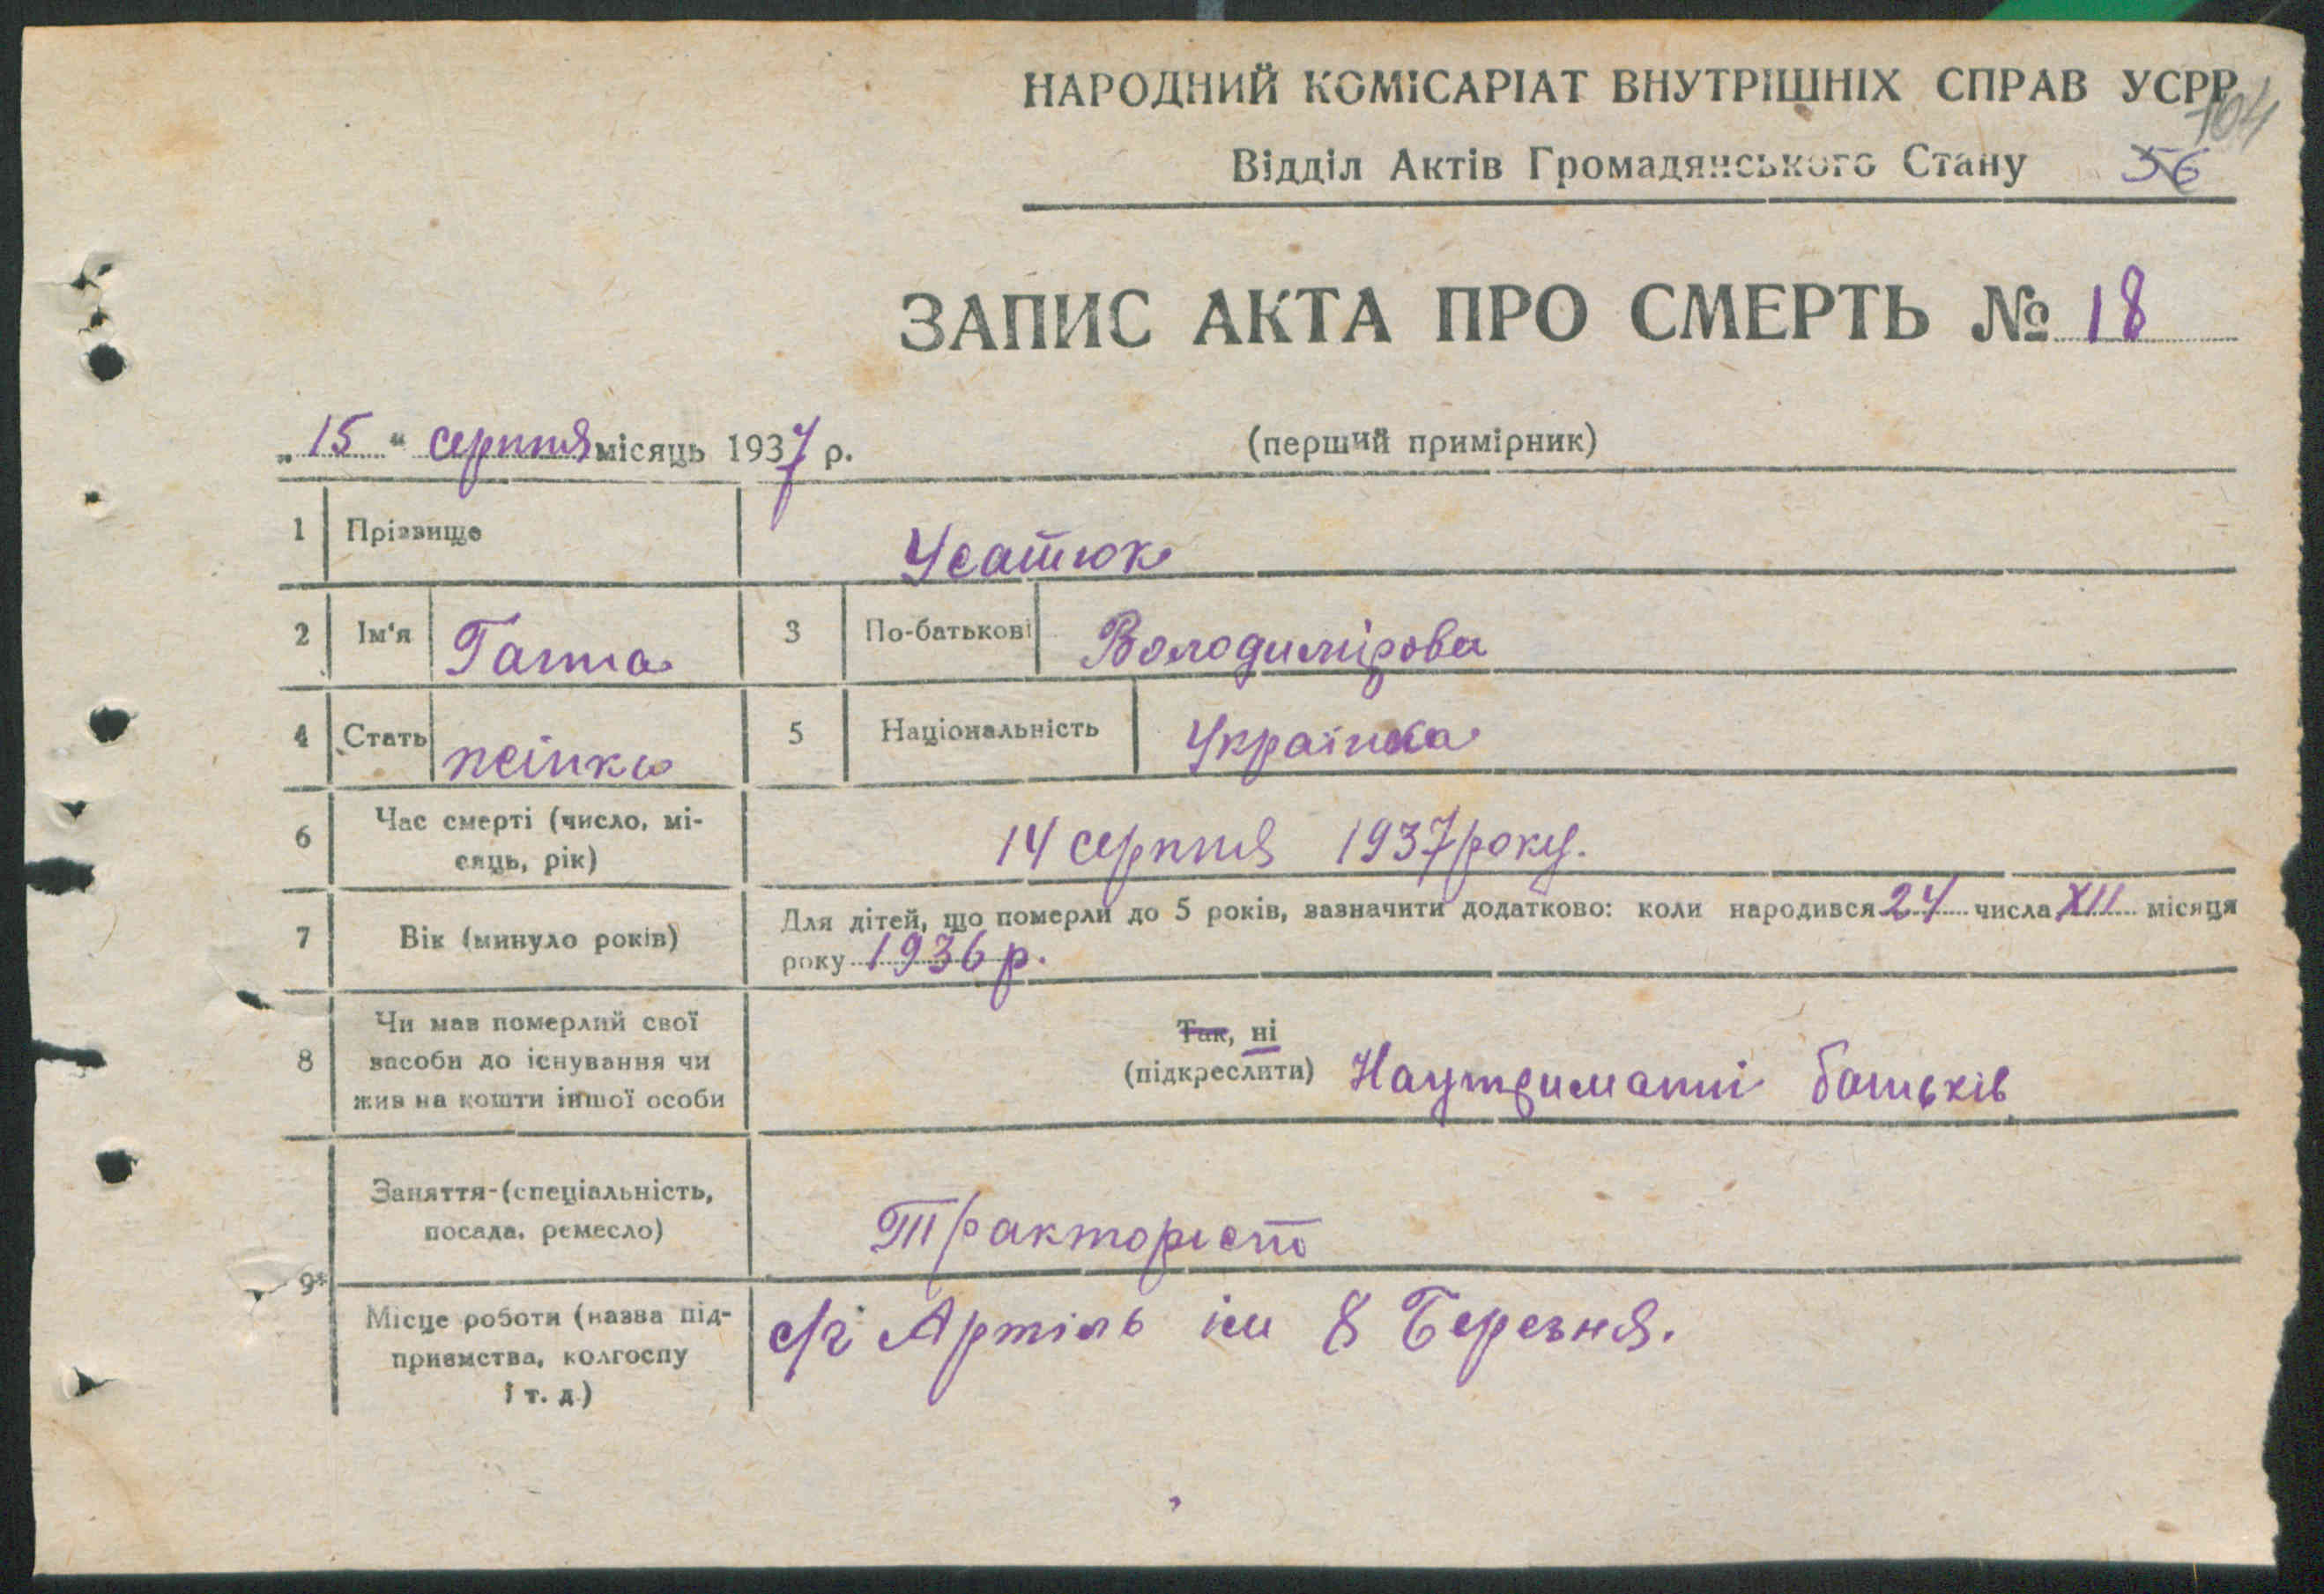 НАРОДНИЙ КОМІСАРІАТ ВНУТРІШНІХ СПРАВ УСРР
104
Відділ Актів Громадянського Стану 56
ЗАПИС АКТА ПРО СМЕРТЬ № 18
„15“ серпня місяць 1937 р. (перший примірник)
1 Прізвище Усатюк
2 Ім'я Ганна 3 По-батькові Володимірова
4 Стать жінка 5 Національність Українка
6 Час смерті (число, мі-
сяць, рік) 14 серпня 1937 року.
7 Вік (минуло років) Для дітей, що померли до 5 років, зазначити додатково: коли народився 24 числа XII місяця
року 1936 р.
8 Чи мав померлий свої
засоби до існування чи
жив на кошти іншої особи
Так, ні
(підкреслити) На утриманні батьків
9* Заняття-(спеціальність,
посада, ремесло) Тракторист
Місце роботи (назва під-
приємства, колгоспу
і т. д.) с/г Артіль ім 8 Березня.